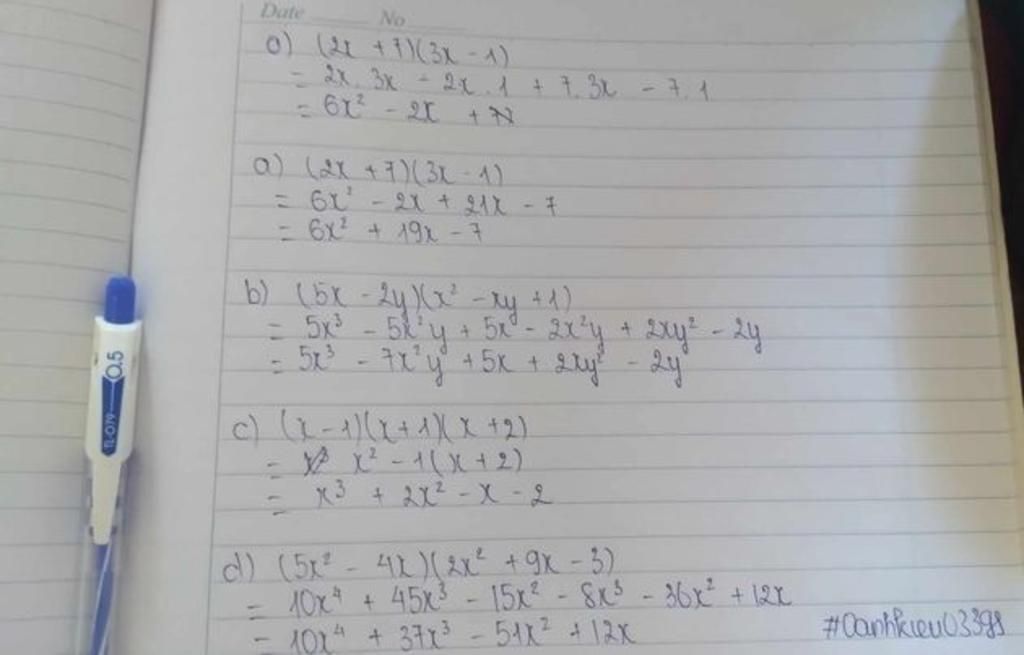 Date No
a) (2x + 7)(3x - 1)
= 2x . 3x - 2x . 1 + 7 . 3x - 7 . 1
= 6x² - 2x +
a) (2x + 7)(3x - 1)
= 6x² - 2x + 21x - 7
= 6x² + 19x - 7
b) (5x - 2y)(x² - xy + 1)
= 5x³ - 5x²y + 5x - 2x²y + 2xy² - 2y
= 5x³ - 7x²y + 5x + 2xy² - 2y
c) (x - 1)(x + 1)(x + 2)
= x² - 1(x + 2)
= x³ + 2x² - x - 2
d) (5x² - 4x)(2x² + 9x - 3)
= 10x⁴ + 45x³ - 15x² - 8x³ - 36x² + 12x
= 10x⁴ + 37x³ - 51x² + 12x
TL-079 0.5